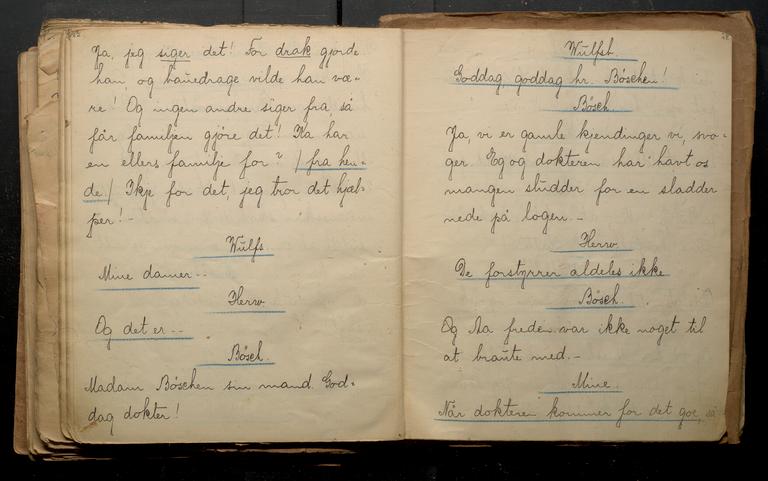 Ja, jeg siger det! For drak gjorde
han, og bauedrage vilde han væ-
re! Og ingen andre siger fra, så
får familjen gjöre det! Ka har
en ellers familje for? / fra hen-
de/ Ikje for det, jeg tror det hjæl-
per! -
Wulfs.
Mine damer --
Herro
Og det er --
Bösch.
Madam Böschen sin mand. God-
dag dokter!
Wulfst.
Goddag, goddag hr. Böschen!
Bösch.
Ja, vi er gamle kjendinger vi, svo-
ger. Eg og dokteren har havt os
mangen sludder for en sladder
nede på logen. -
Herro.
De forstyrrer aldeles ikke
Bösch.
Og Aa freden var ikke noget til
at braute med. -
Mine.
Når dokteren kommer for det goe, så